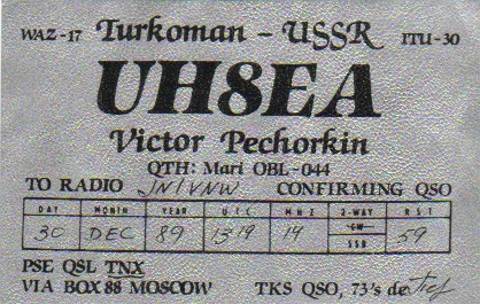 WAZ-17 Turkoman - USSR ITU-30
UH8EA
Victor Pechorkin
QTH: Mari OBL-044
TO RADIO JN1VNW CONFIRMING QSO
DAY MONTH YEAR UTC MHZ 2-WAY RST
30 DEC 89 1319 14 CW SSB 59
PSE QSL TNX
VIA BOX 88 MOSCOW TKS QSO, 73's de